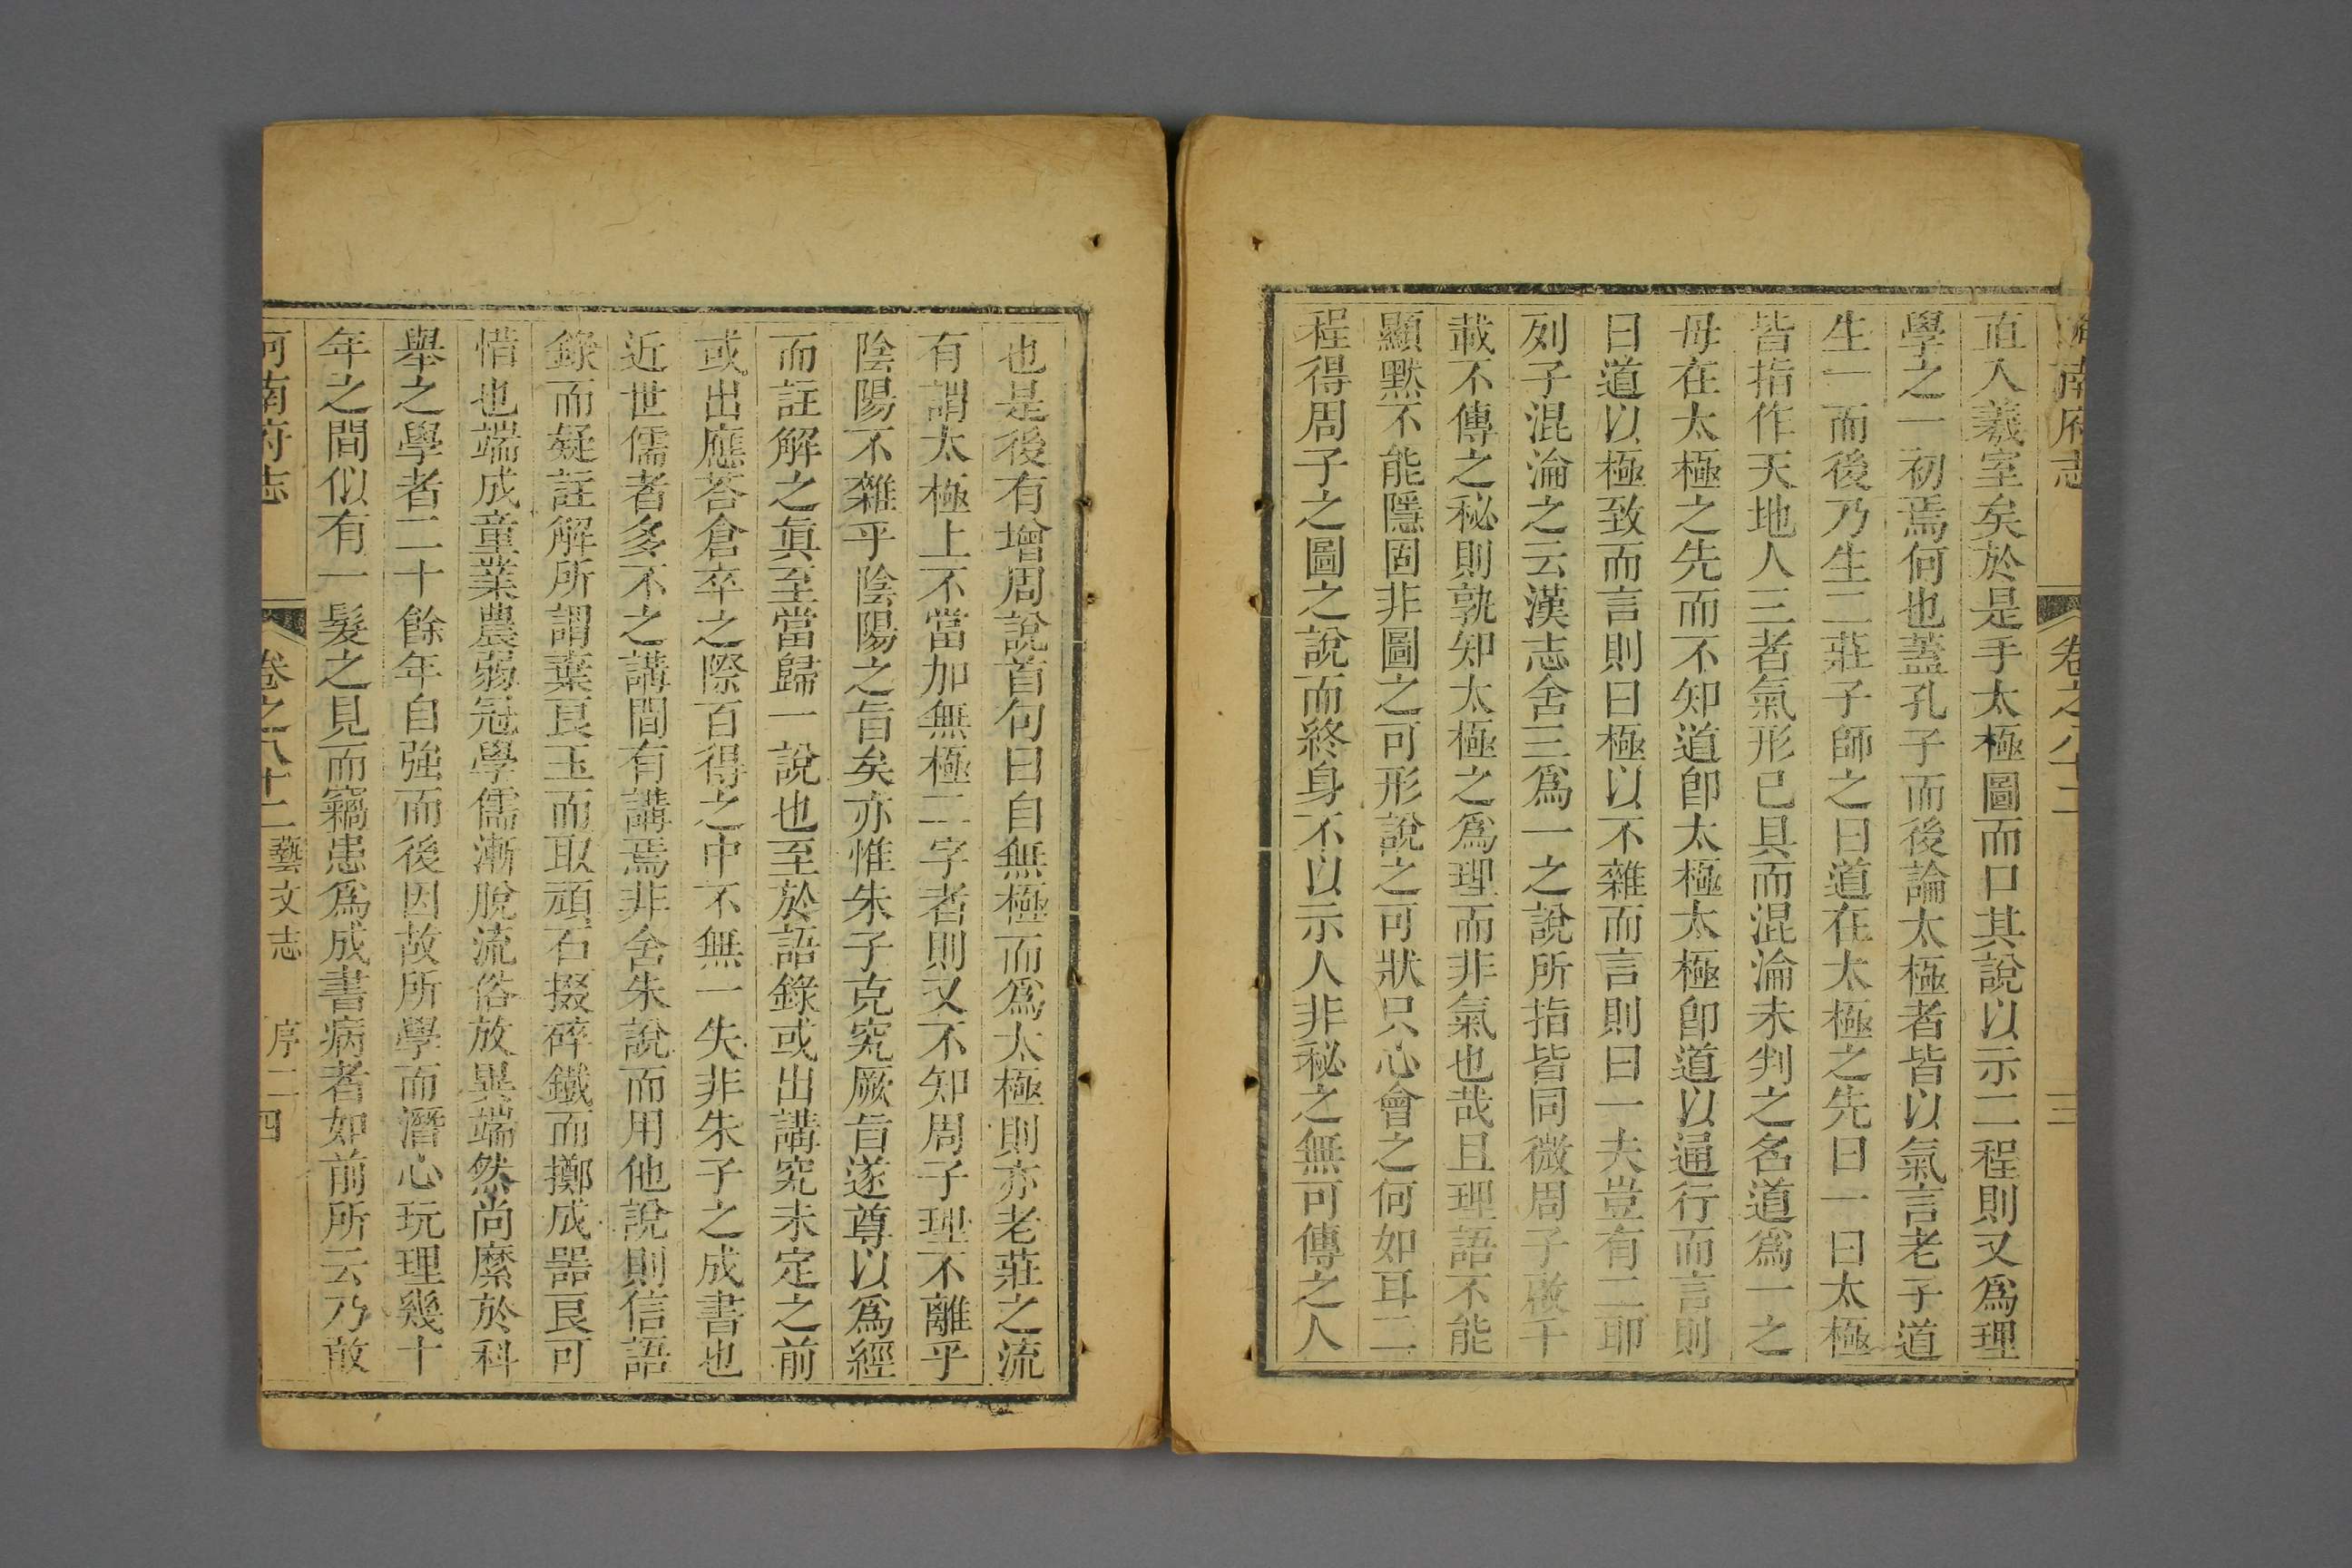 河南府志 卷之八十二 三
直入羲室矣於是手太極圖而口其說以示二程則又爲理
學之一初焉何也蓋孔子而後論太極者皆以氣言老子道
生一而後乃生二莊子師之曰道在太極之先曰一曰太極
皆指作天地人三者氣形已具而混淪未判之名道爲一之
母在太極之先而不知道卽太極太極卽道以通行而言則
曰道以極致而言則曰極以不雜而言則曰一夫豈有二耶
列子混淪之云漢志含三爲一之說所指皆同微周子啟千
載不傳之秘則孰知太極之爲理而非氣也哉且理語不能
顯默不能隱固非圖之可形說之可狀只心會之何如耳二
程得周子之圖之說而終身不以示人非秘之無可傳之人
也是後有增周說首句曰自無極而爲太極則亦老莊之流
有謂太極上不當加無極二字者則又不知周子理不離乎
陰陽不雜乎陰陽之旨矣亦惟朱子克究厥旨遂尊以爲經
而註解之眞至當歸一說也至於語錄或出講究未定之前
或出應荅倉卒之際百得之中不無一失非朱子之成書也
近世儒者多不之講間有講焉非舍朱說而用他說則信語
錄而疑註解所謂棄良玉而取頑石掇碎鐵而擲成噐良可
惜也端成童業農弱冠學儒漸脫流俗放異端然尚縻於科
舉之學者二十餘年自強而後因故所學而潛心玩理幾十
年之間似有一髮之見而竊患爲成書病者如前所云乃敢
河南府志 卷之八十二 藝文志 序二 四